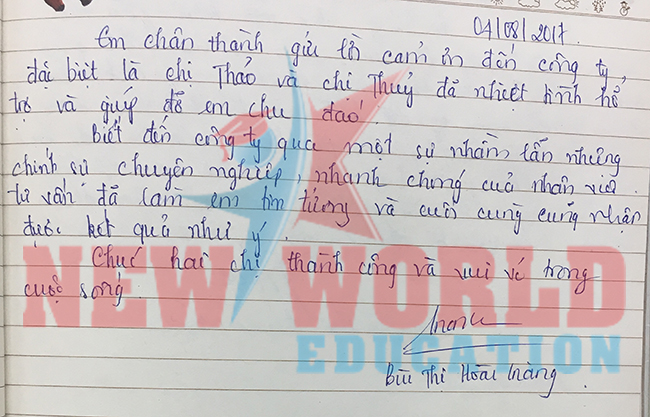 04/08/2017.
Em chân thành gửi lời cảm ơn đến công ty,
đặc biệt là chị Thảo và chị Thuỷ đã nhiệt tình hỗ
trợ và giúp đỡ em chu đáo.
Biết đến công ty qua một sự nhầm lẫn nhưng
chính sự chuyên nghiệp, nhanh chóng của nhân viên
tư vấn đã làm em tin tưởng và cuối cùng cũng nhận
được kết quả như ý.
Chúc hai chị thành công và vui vẻ trong
cuộc sống.
NEW WORLD
EDUCATION
Bùi Thị Hoài